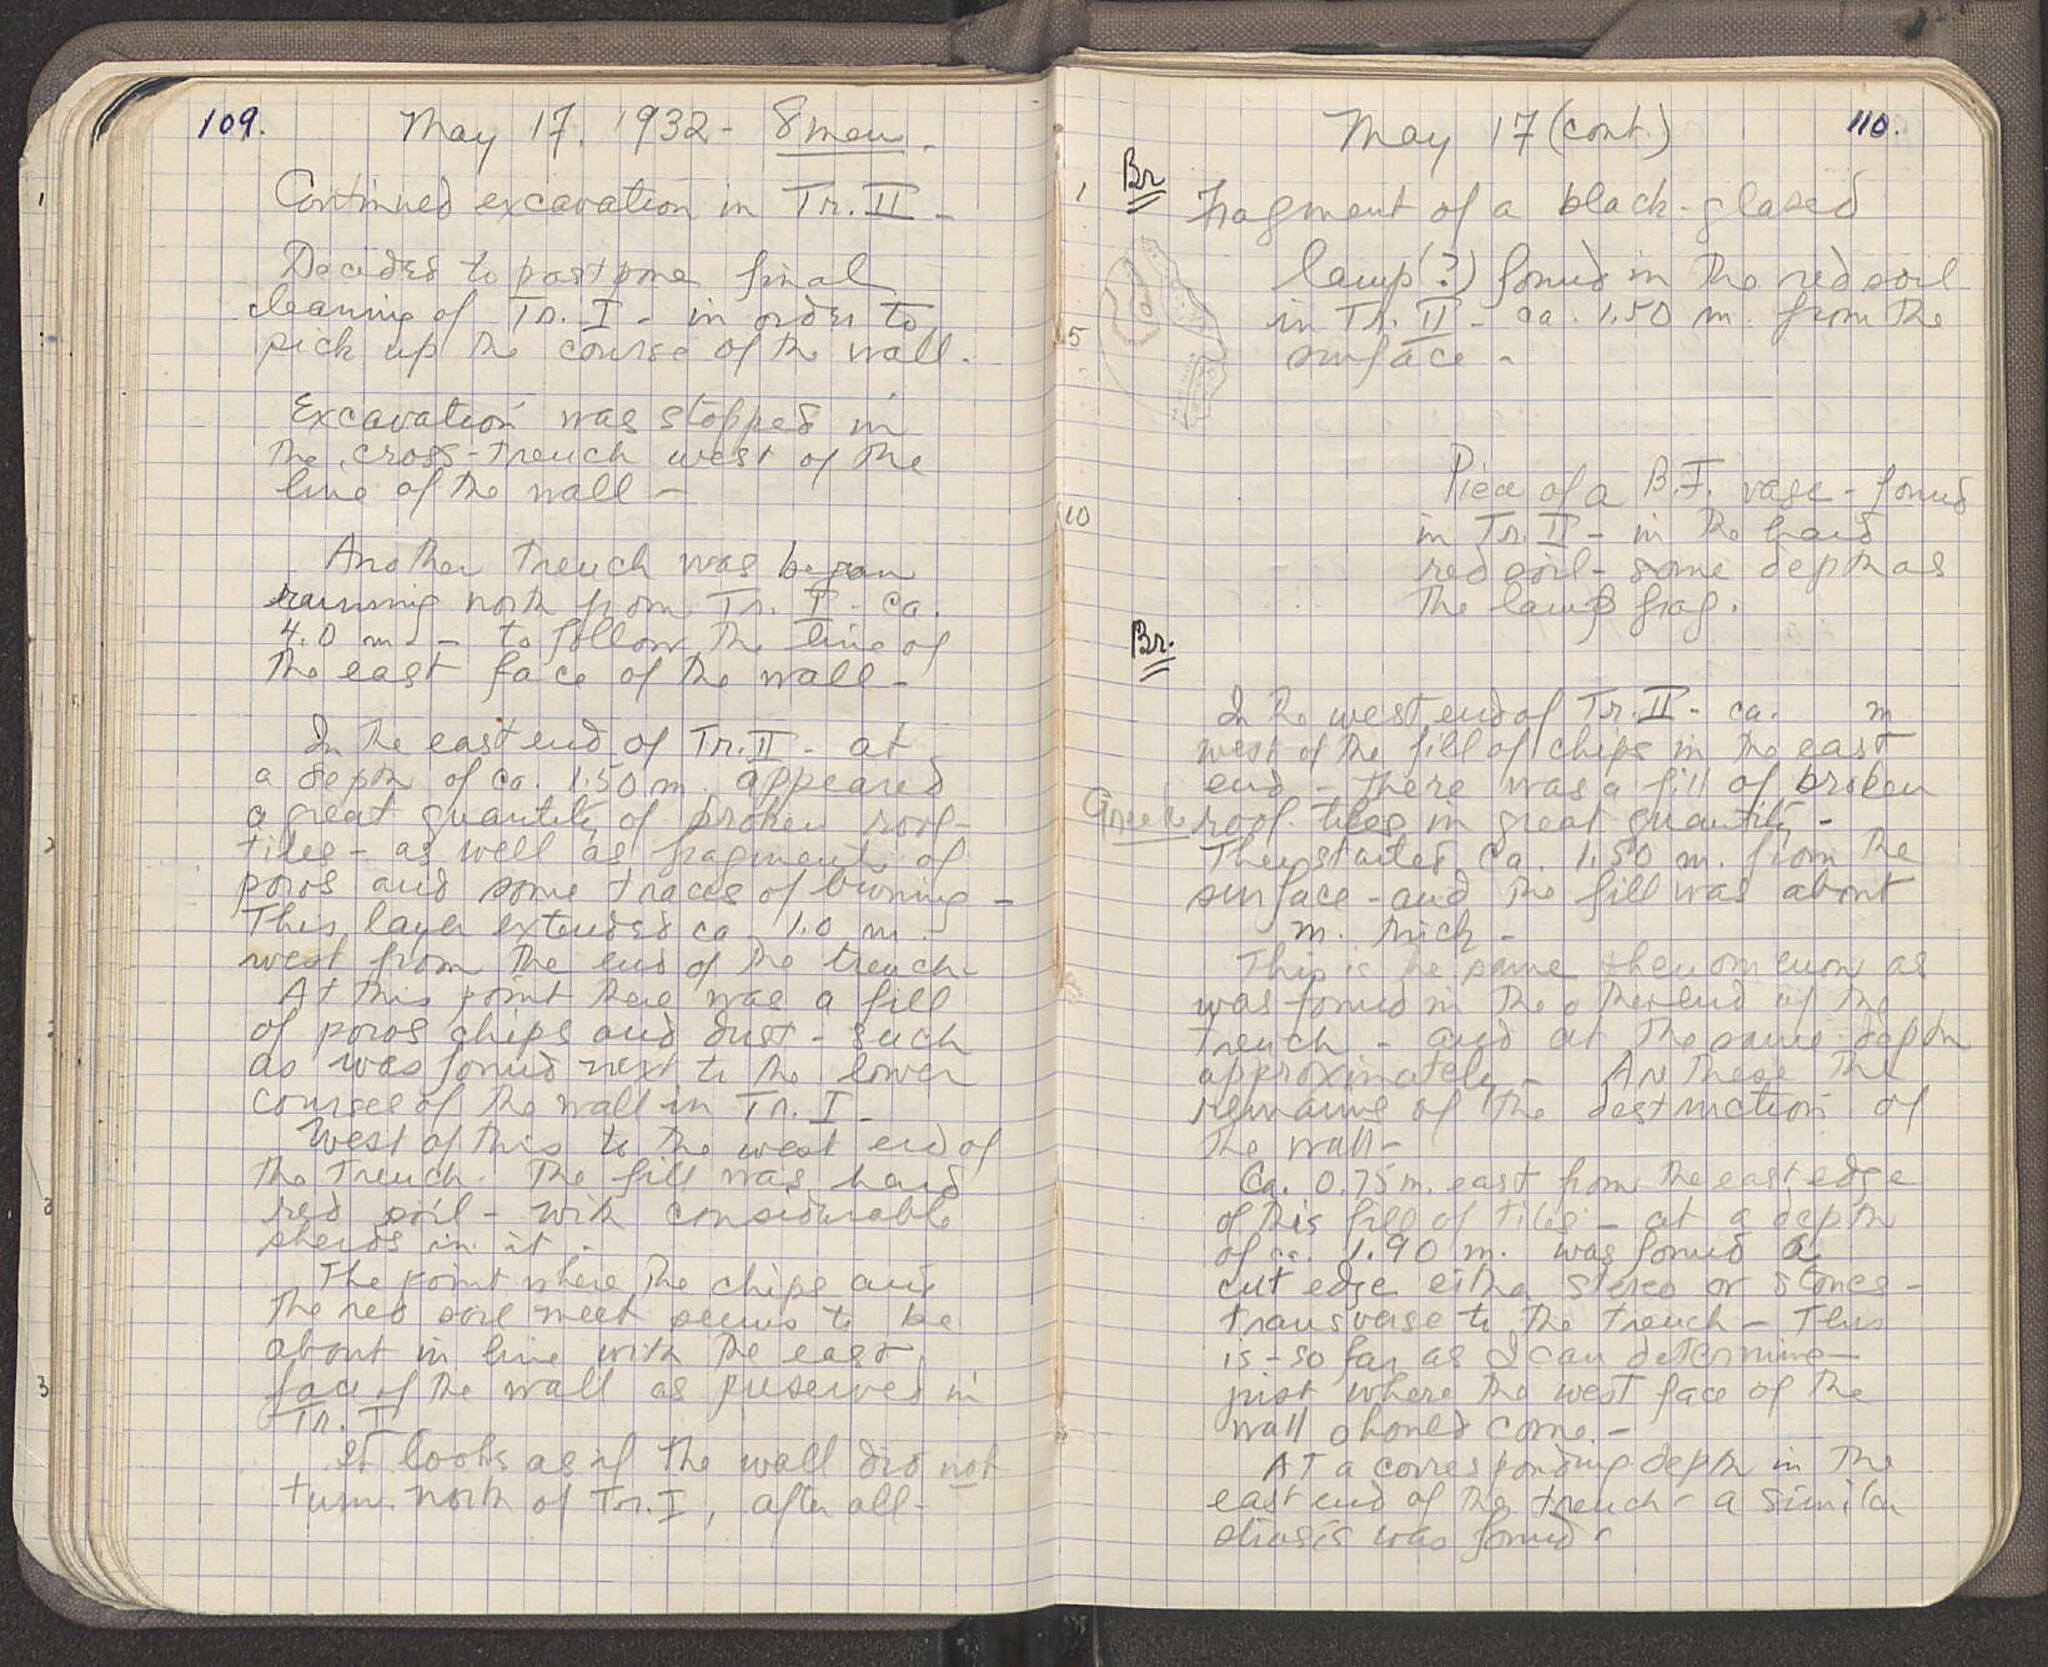 109.
May 17, 1932 - 8 men.
Continued excavation in Tr. II -
Decided to postpone final
cleaning of Tr. I - in order to
pick up the course of the wall.
Excavation was stopped in
the cross-trench west of the
line of the wall -
Another trench was began
running north from Tr. I - ca.
4.0 m. - to follow the line of
the east face of the wall -
In the east end of Tr. II - at
a depth of ca. 1.50 m appeared
a great quantity of broken roof-
tiles - as well as fragments of
poros and some traces of burning -
This layer extended ca 1.0 m.
west from the end of the trench
At this point there was a fill
of poros chips and dust - such
as was found next to the lower
courses of the wall in Tr. I -
West of this to the west end of
the trench. The fill was hard
red soil - with considerable
sherds in it.
The point where the chips and
the red soil meet seems to be
about in line with the east
face of the wall as preserved in
Tr. I
It looks as if the wall did not
turn north of Tr. I, after all -
1
2
3
3
May 17 (cont.)
110.
1
5
10
Br
Fragment of a black-glazed
lamp (?) found in the red soil
in Tr. II - ca. 1.50 m. from the
surface -
Piece of a B.F. vase - found
in Tr. II - in the hard
red soil - same depth as
the lamp frag.
Br.
In the west end of Tr. II - ca. m
west of the fill of chips in the east
end - there was a fill of broken
Greek roof-tiles in great quantity -
They started ca. 1.50 m. from the
surface - and the fill was about
m. thick -
This is the same phenomenon as
was found in the other end of the
trench - and at the same depth
approximately - Are these the
remains of the destruction of
the wall -
Ca. 0.75 m. east from the east edge
of this fill of tiles - at a depth
of ca. 1.90 m. was found a
cut edge either stereo or stones -
transverse to the trench - This
is - so far as I can determine -
just where the west face of the
wall should come. -
At a corresponding depth in the
east end of the trench - a similar
stiasis was found -